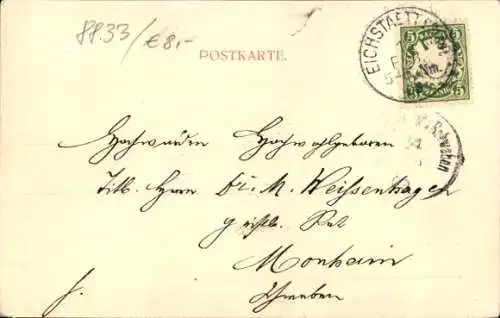 8833/€8,-
POSTKARTE.
EICHSTAETT
5 5
Hochwürden Hochwohlgeboren
Titl. Herrn Dr. M. Weissenhagen
geistl. Rat
Monheim
Schwaben